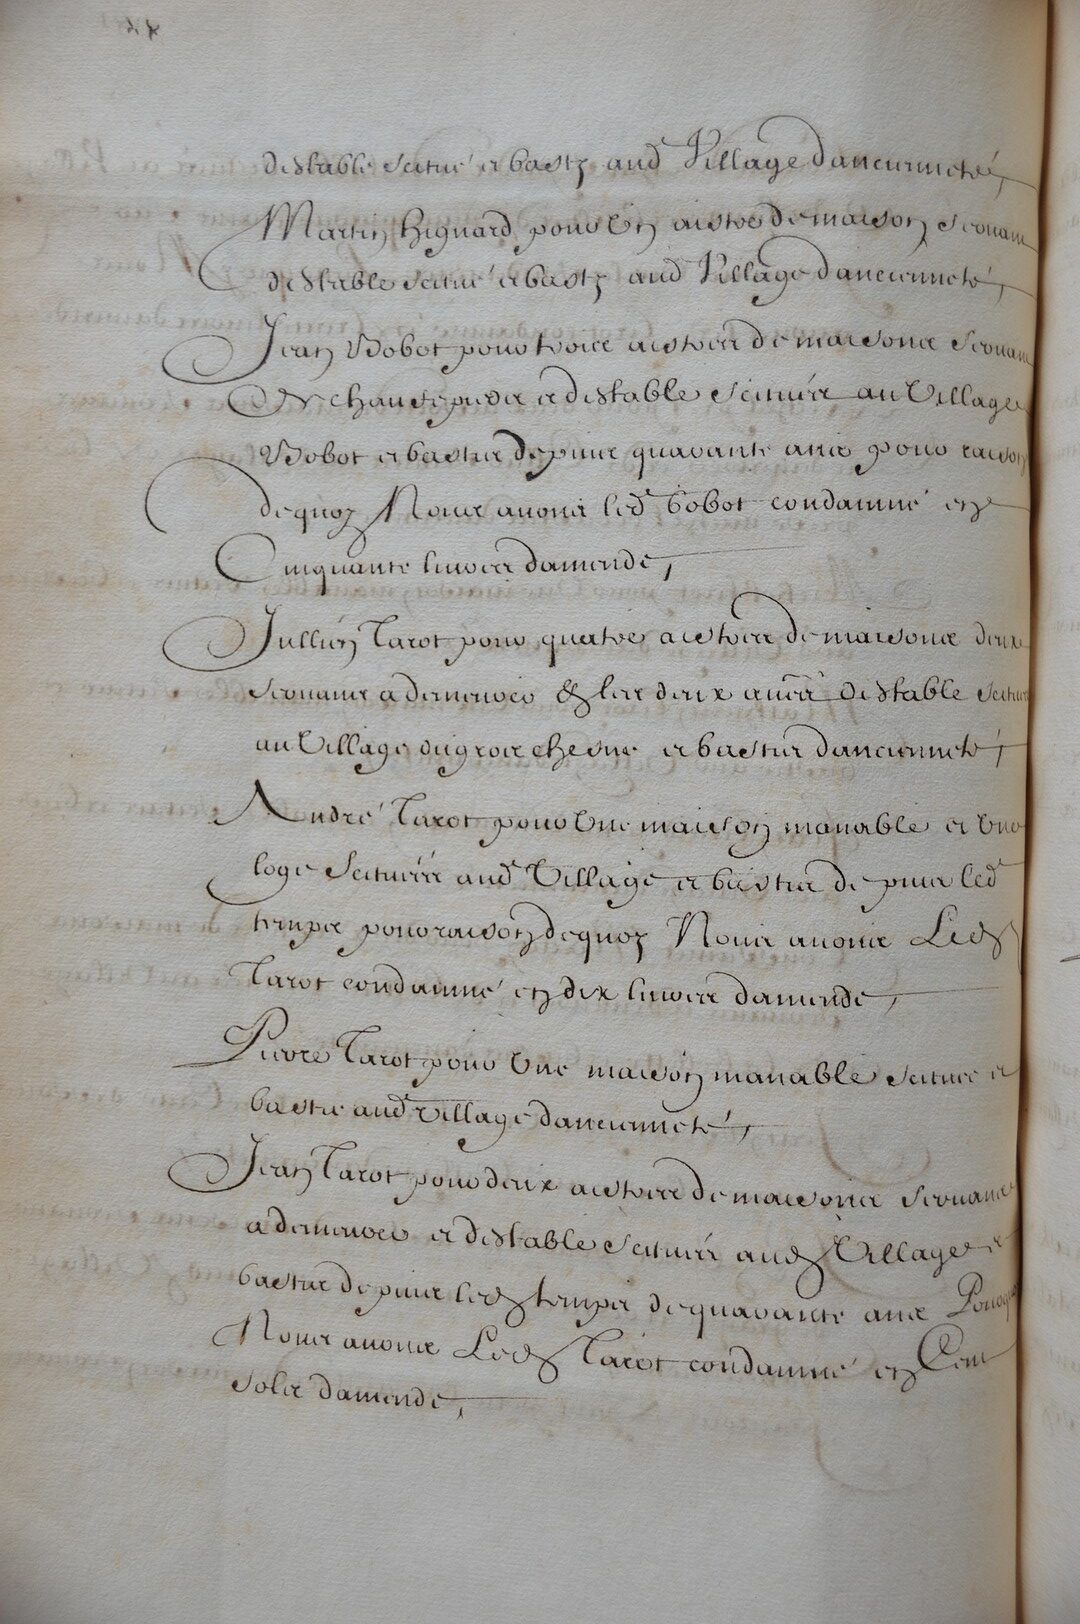 destable scitué et basty aud Village dancienneté,
Martin higuard pour Un aistre de maison servant
destable scitué et basty aud Village dancienneté,
Jean Bobot pour trois aistres de maisons servans
de chausepierre et destable scituées au Village
Bobot et basties depuis quarante ans pour raison
dequoy Nous avons led bobot condamné en
Cinquante livres damende,
Jullien Tarot pour quatre aistres de maisons deux
servans a demeurer & les deux aues destable scitués
au Village du gros chesne et bastis dancienneté,
André Tarot pour Une maison manable et Une
loge Scituées aud Village et basties depuis led
temps pour raison dequoy Nous avons Led
Tarot condamné en dix livres damende,
Pierre Tarot pour Une maison manable scituee et
bastie aud Village dancienneté,
Jean Tarot pour deux aistres de maisons servans
a demeurer et destable scitués aud Village et
bastis depuis led temps de quarante ans Pour quoy
Nous avons Led Tarot condamné en Cent
sols damende,